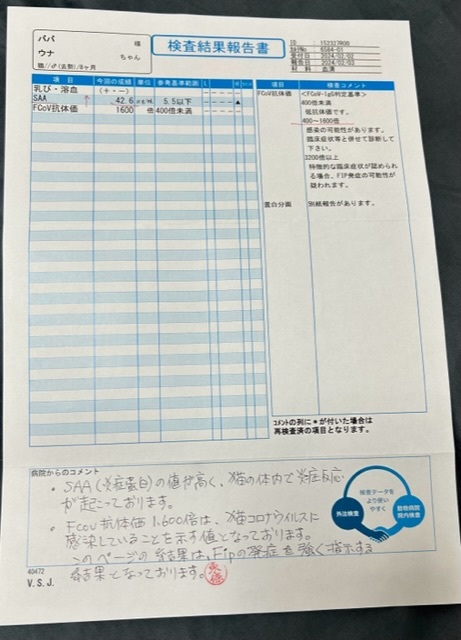 パパ 様
ウナ ちゃん
猫//♂(去勢)/9ヶ月
検査結果報告書
ID : 152327R00
受付日 2024/02/02
報告日 2024/02/03
材料 : 血清
項目 今回の成績 単位 参考基準範囲 L H
乳び・溶血 (+・-)
SAA ↑ 42.6 5.5以下 ▲
FCoV抗体価 1600 倍 400倍未満
項目 検査コメント
FCoV抗体価 <FCoV-IgG判定基準>
400倍未満
低抗体価です。
400~1600倍
感染の可能性があります。
臨床症状等と併せて診断して
下さい。
3200倍以上
特徴的な臨床症状が認められ
る場合、FIP発症の可能性が
疑われます。
蛋白分画 別紙報告があります。
コメントの列に*が付いた場合は
再検査済の項目となります。
病院からのコメント
・SAA(炎症蛋白)の値が高く、猫の体内で炎症反応
が起こっております。
・Fcov抗体価1,600倍は、猫コロナウイルスに
感染していることを示す値となっております。
このページの結果は、Fipの発症を強く指示する
結果となっております。
検査データを
より使い
やすく
外注検査
動物病院
院内検査
40472
V.S.J.